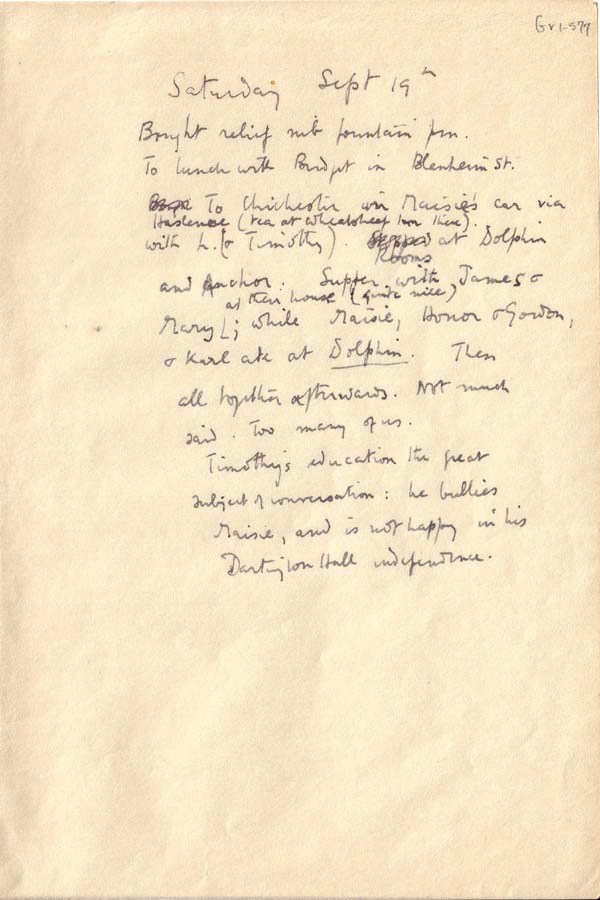 Gr1-577
Saturday Sept 19th
Bought relief nib fountain pen.
To lunch with Bridget in Blenheim St.
To Chichester in Maisie's car via
Haslemere (tea at Wheatsheaf Inn there).
with h. (& Timothy). Stopped at Dolphin
Rooms
and Anchor. Supper with James &
at their house (quite nice)
Mary L; while Maisie, Honor & Gordon,
& Karl ate at Dolphin. Then
all together afterwards. Not much
said. Too many of us.
Timothy's education the great
subject of conversation: he bullies
Maisie, and is not happy in his
Dartington Hall independence.